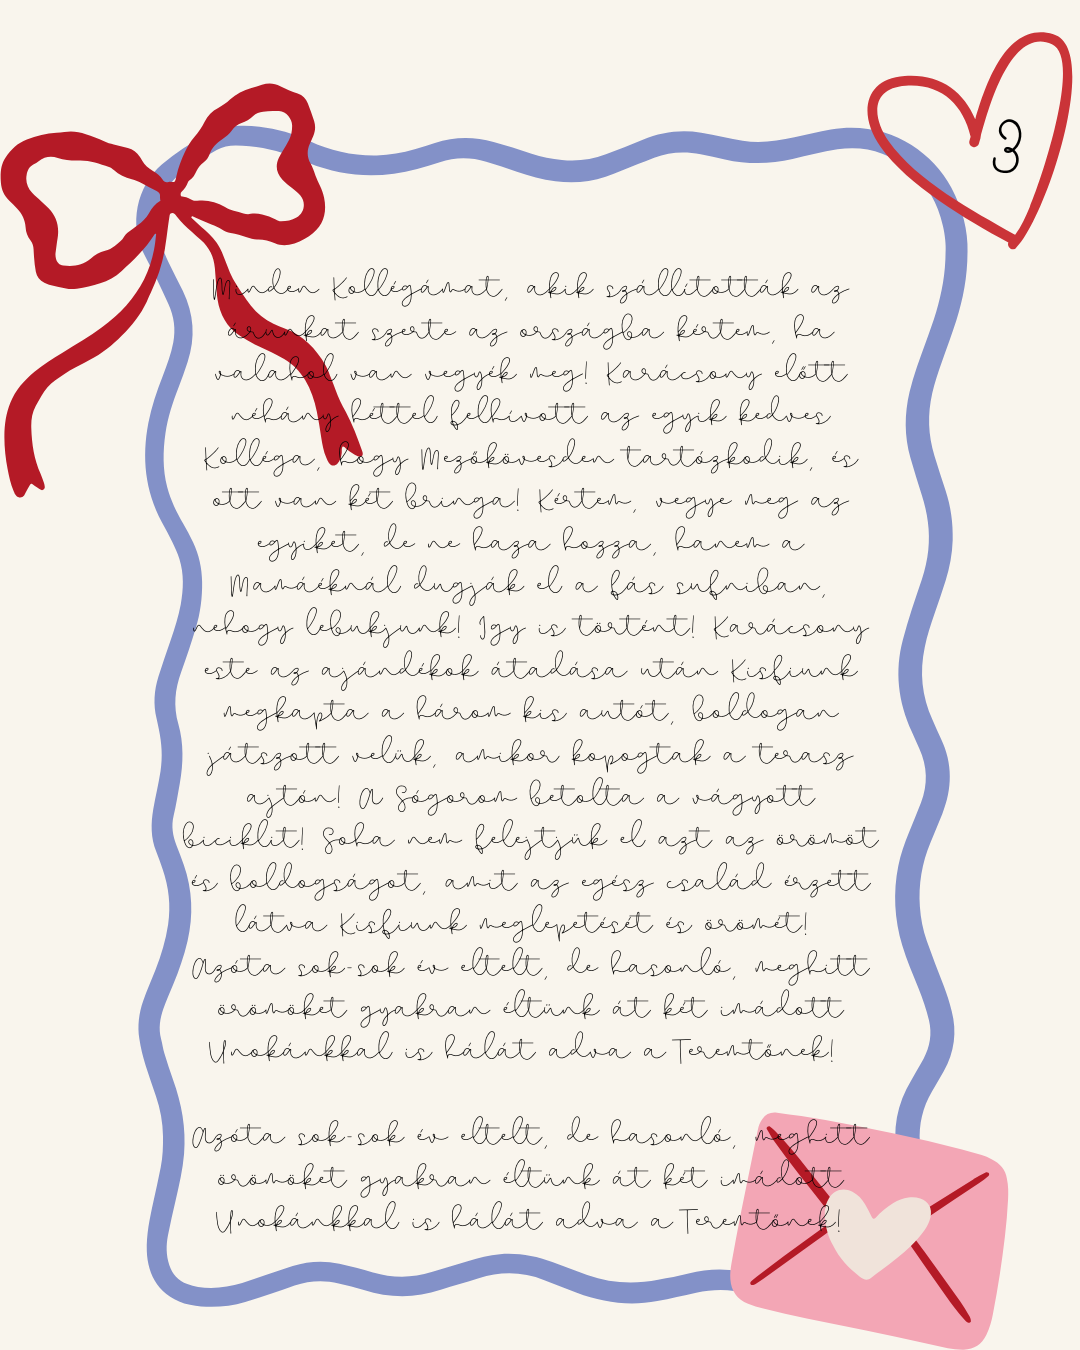 3
Minden Kollégámat, akik szállították az
árunkat szerte az országba kértem, ha
valahol van vegyék meg! Karácsony előtt
néhány héttel felhívott az egyik kedves
Kolléga, hogy Mezőkövesden tartózkodik, és
ott van két bringa! Kértem, vegye meg az
egyiket, de ne haza hozza, hanem a
Mamáéknál dugják el a fás sufniban,
nehogy lebukjunk! Igy is történt! Karácsony
este az ajándékok átadása után Kisfiunk
megkapta a három kis autót, boldogan
játszott velük, amikor kopogtak a terasz
ajtón! A Sógorom betolta a vágyott
biciklit! Soha nem felejtjük el azt az örömöt
és boldogságot, amit az egész család érzett
látva Kisfiunk meglepetését és örömét!
Azóta sok-sok év eltelt, de hasonló, meghitt
örömöket gyakran éltünk át két imádott
Unokánkkal is hálát adva a Teremtőnek!
Azóta sok-sok év eltelt, de hasonló, meghitt
örömöket gyakran éltünk át két imádott
Unokánkkal is hálát adva a Teremtőnek!